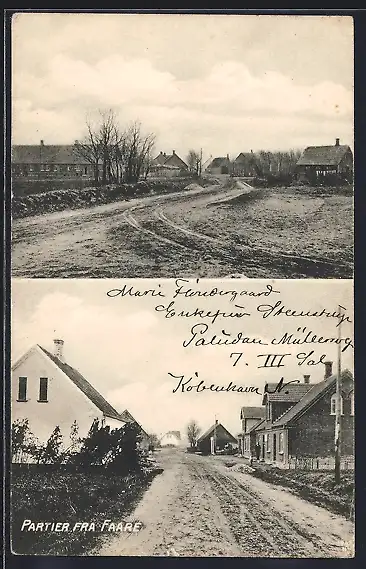 Marie Flöndergaard
Enkefru Steenstrup
Paludan Müllersvej
7. III Sal
København N
PARTIER FRA FAARE